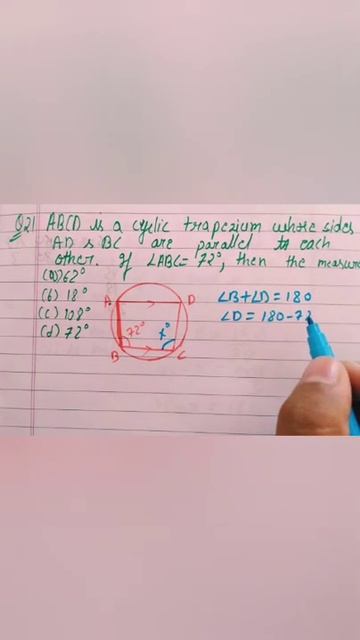 Q21 ABCD is a cyclic trapezium whose sides
AD & BC are parallel to each
other. If ∠ABC = 72°, then the measure
(a) 62°
(b) 18°
(c) 108°
(d) 72°
A D
72° x°
B C
∠B + ∠D = 180
∠D = 180 - 72